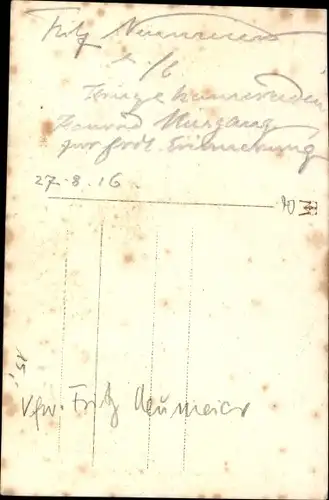 Fritz Neumeier
s./l
Kriegskameraden
Konrad Hirgang
zur frdl. Erinnerung
27.8.16.
Vfw. Fritz Neumeier